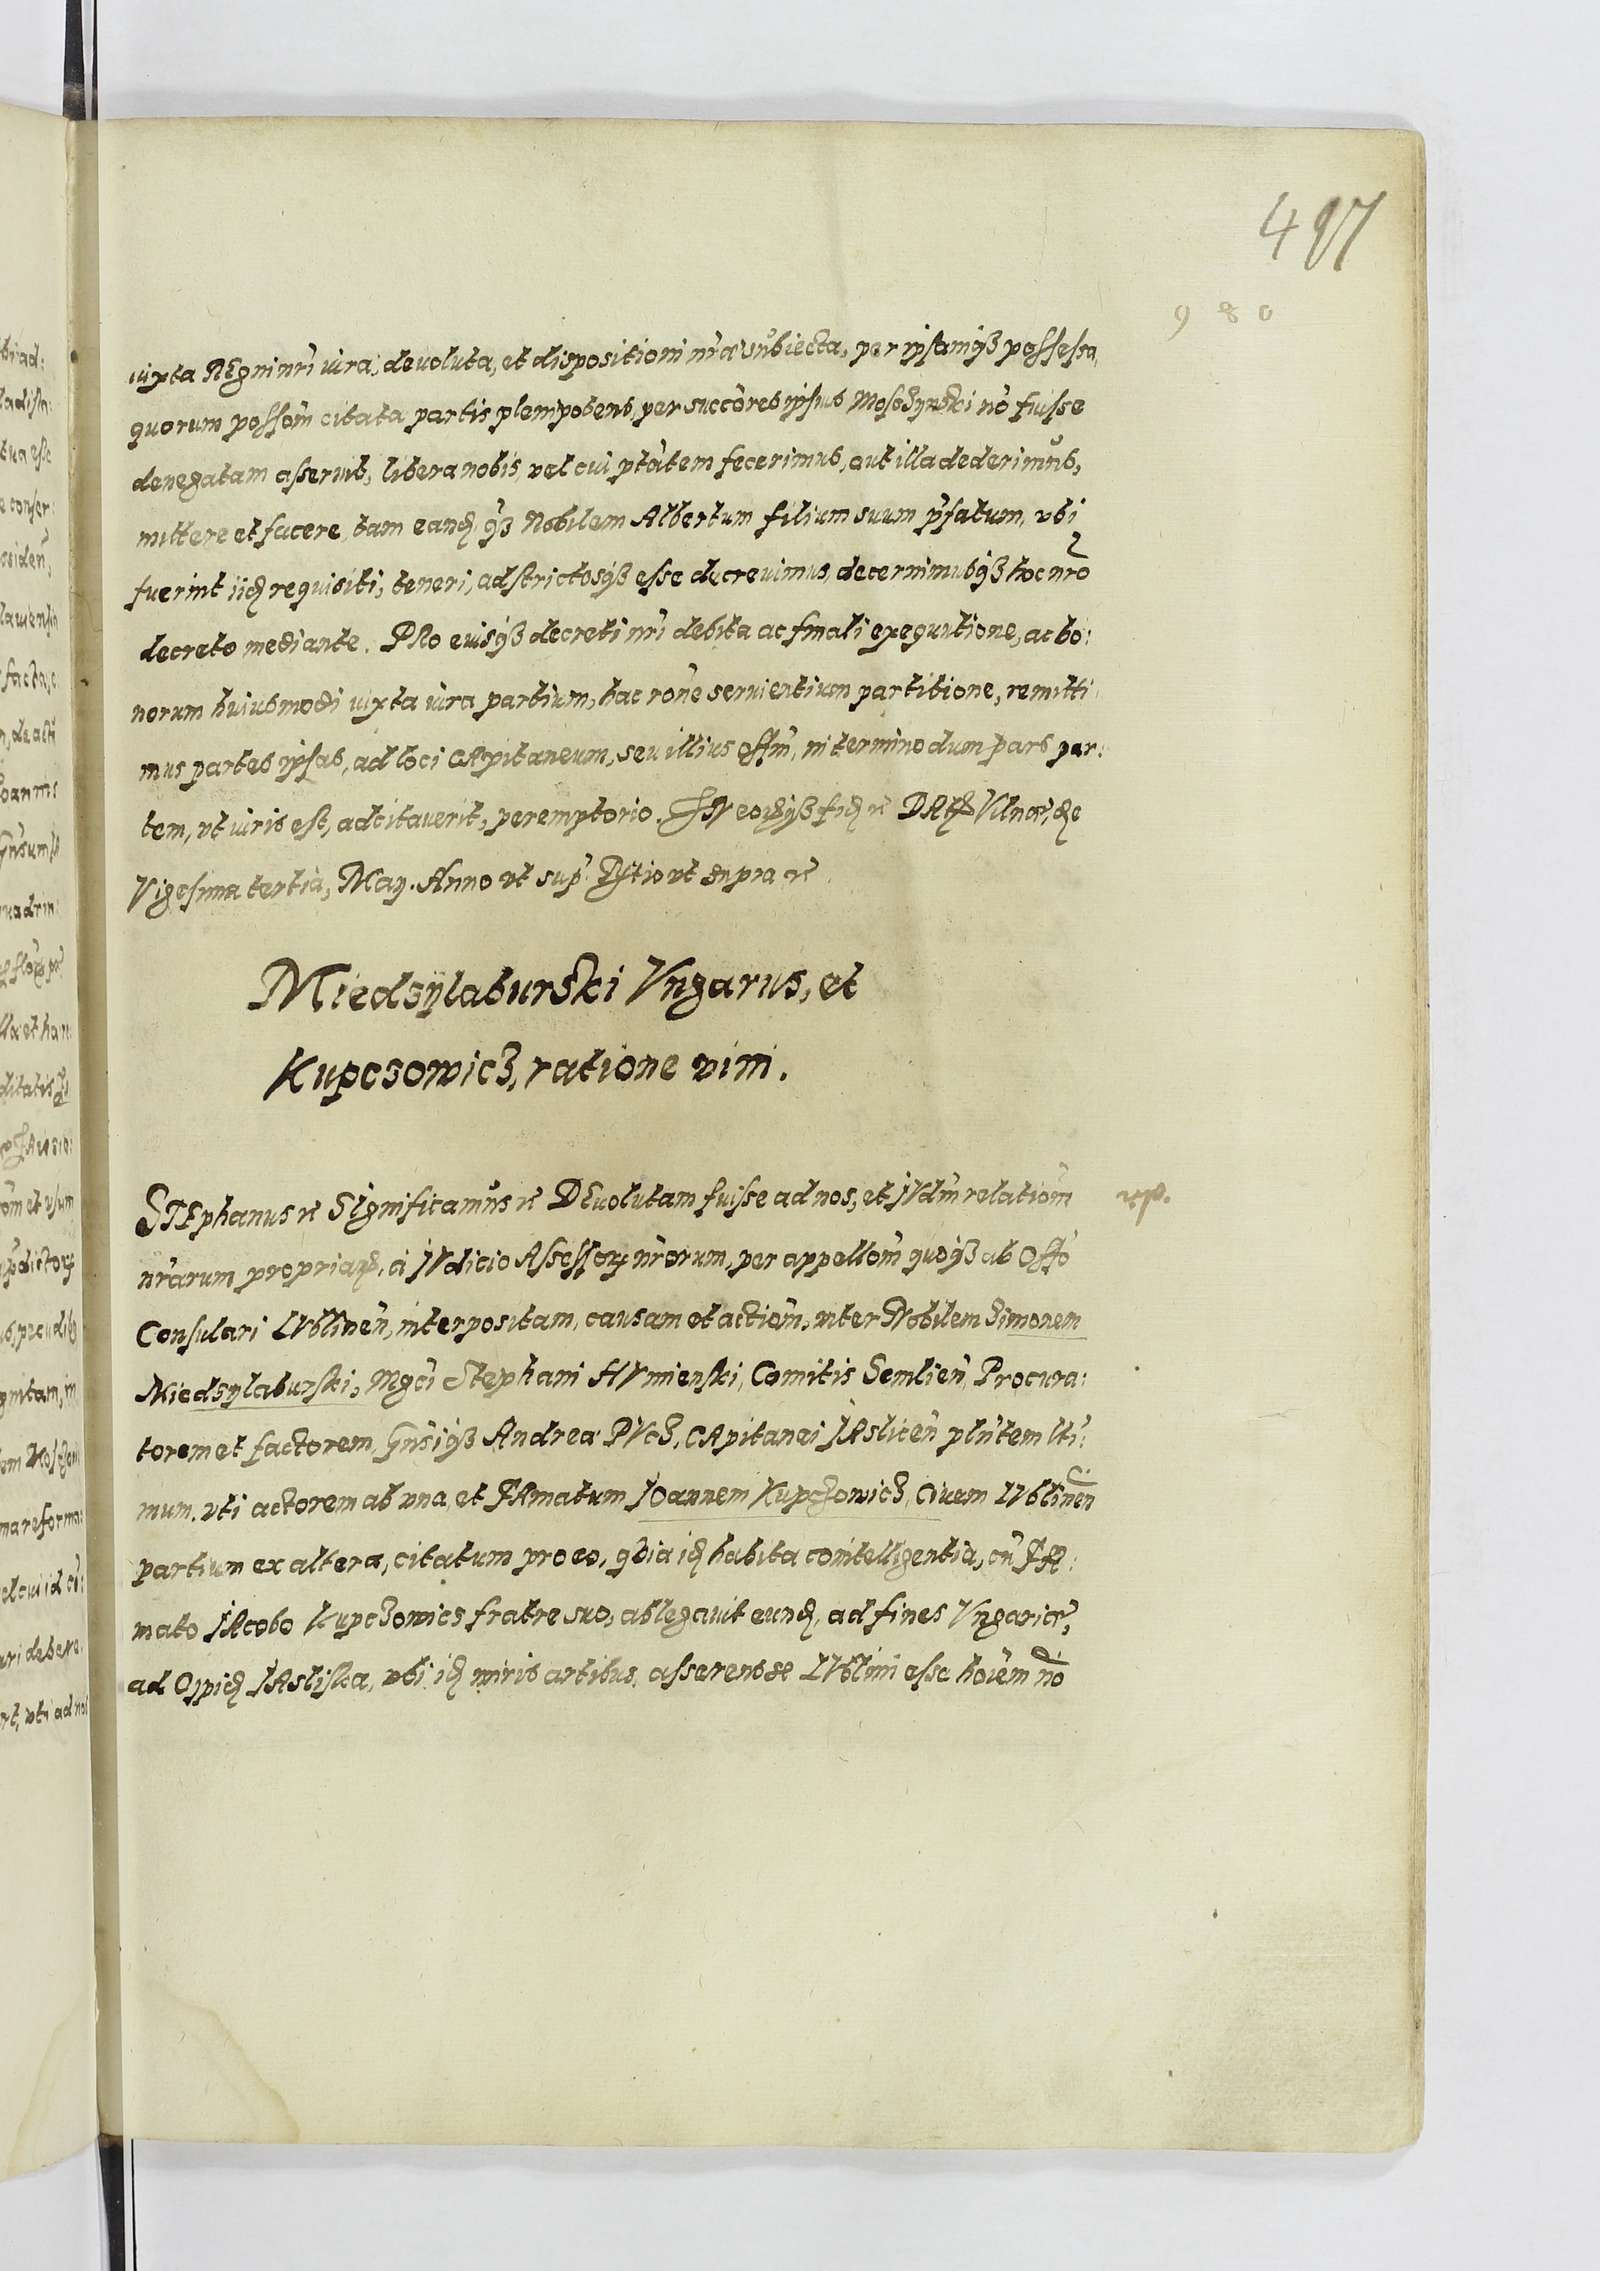 497
980
iuxta REgni nr̃i iura, deuoluta, et dispositioni nr̃æ subiecta, per ipsamq3 possessa,
quorum possom̃ citata partis plenipotens, per succ̃ores ipsius Mosodynski nõ fuisse
denegatam asseruit, libera nobis, vel cui ptãtem fecerimus, aut illa dederimus,
mittere et facere, tam eand, q3 Nobilem Albertum filium suum p̃fatum, vbi
fuerint iid requisiti, teneri, adstrictosq3 esse decreuimus, decernimusq3 hoc nr̃o
decreto mediante. PRo eiusq3 decreti nr̃i debita ac finali exequutione, ac bo:
norum huiusmodi iuxta iura partium, hac rõne seruientium partitione, remitti:
mus partes ipsas, ad loci CApitaneum, seu illius offm̃, in termino dum pars par:
tem, vt iuris est, adcitauerit, peremptorio. DAt Vilnæ, die
Vigesima tertia, May. Anno vt sup̃. vt supra
Miedsÿlaburski Vngarus, et
Kupcsowicz, ratione vini.
STEphanus SIgnificamus DEuolutam fuisse ad nos, et IVdm̃ relatiom̃
nr̃arum propriar, a IVdicio Assessor nr̃orum, per appellom̃ quoq3 ab Offõ
Consulari LVblineñ, interpositam, causam et actiom̃, inter NObilem Simonem
Miedsylaburski, Mgci Stephani HVmienski, Comitis Semlieñ, Procura:
torem et factorem, Gñsiq3 Andreæ PVcz, CApitanei IAsliceñ
mum. vti actorem ab vna, et FAmatum IOannem Kupczowicz, Ciuem LVblineñ
partium ex altera, citatum pro eo, qd̃ia id habita cointelligentia, cũ FA:
mato IAcobo Kupczowics fratre suo, ablegauit eund, ad fines Vngariæ,
ad Oppid IAsliska, vbi id miris artibus, asserens se LVblini esse hoĩem nõ